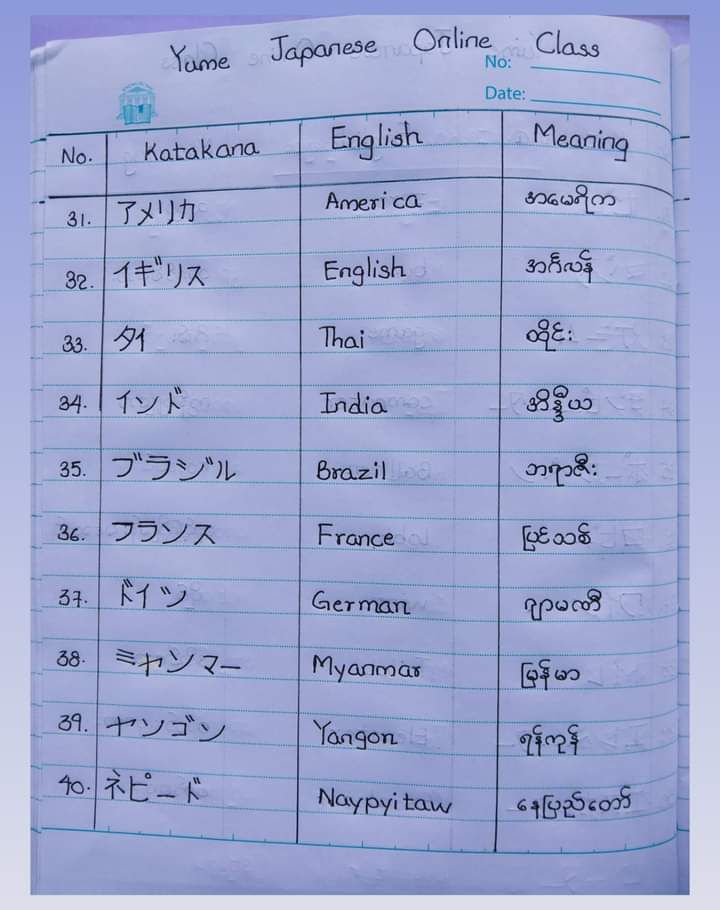 Yume Japanese Online Class
No:
Date:
No. Katakana English Meaning
31. アメリカ America အမေရိက
32. イギリス English အင်္ဂလန်
33. タイ Thai ထိုင်း
34. インド India အိန္ဒိယ
35. ブラジル Brazil ဘရာဇီး
36. フランス France ပြင်သစ်
37. ドイツ German ဂျာမဏီ
38. ミャンマー Myanmar မြန်မာ
39. ヤンゴン Yangon ရန်ကုန်
40. ネピード Naypyitaw နေပြည်တော်